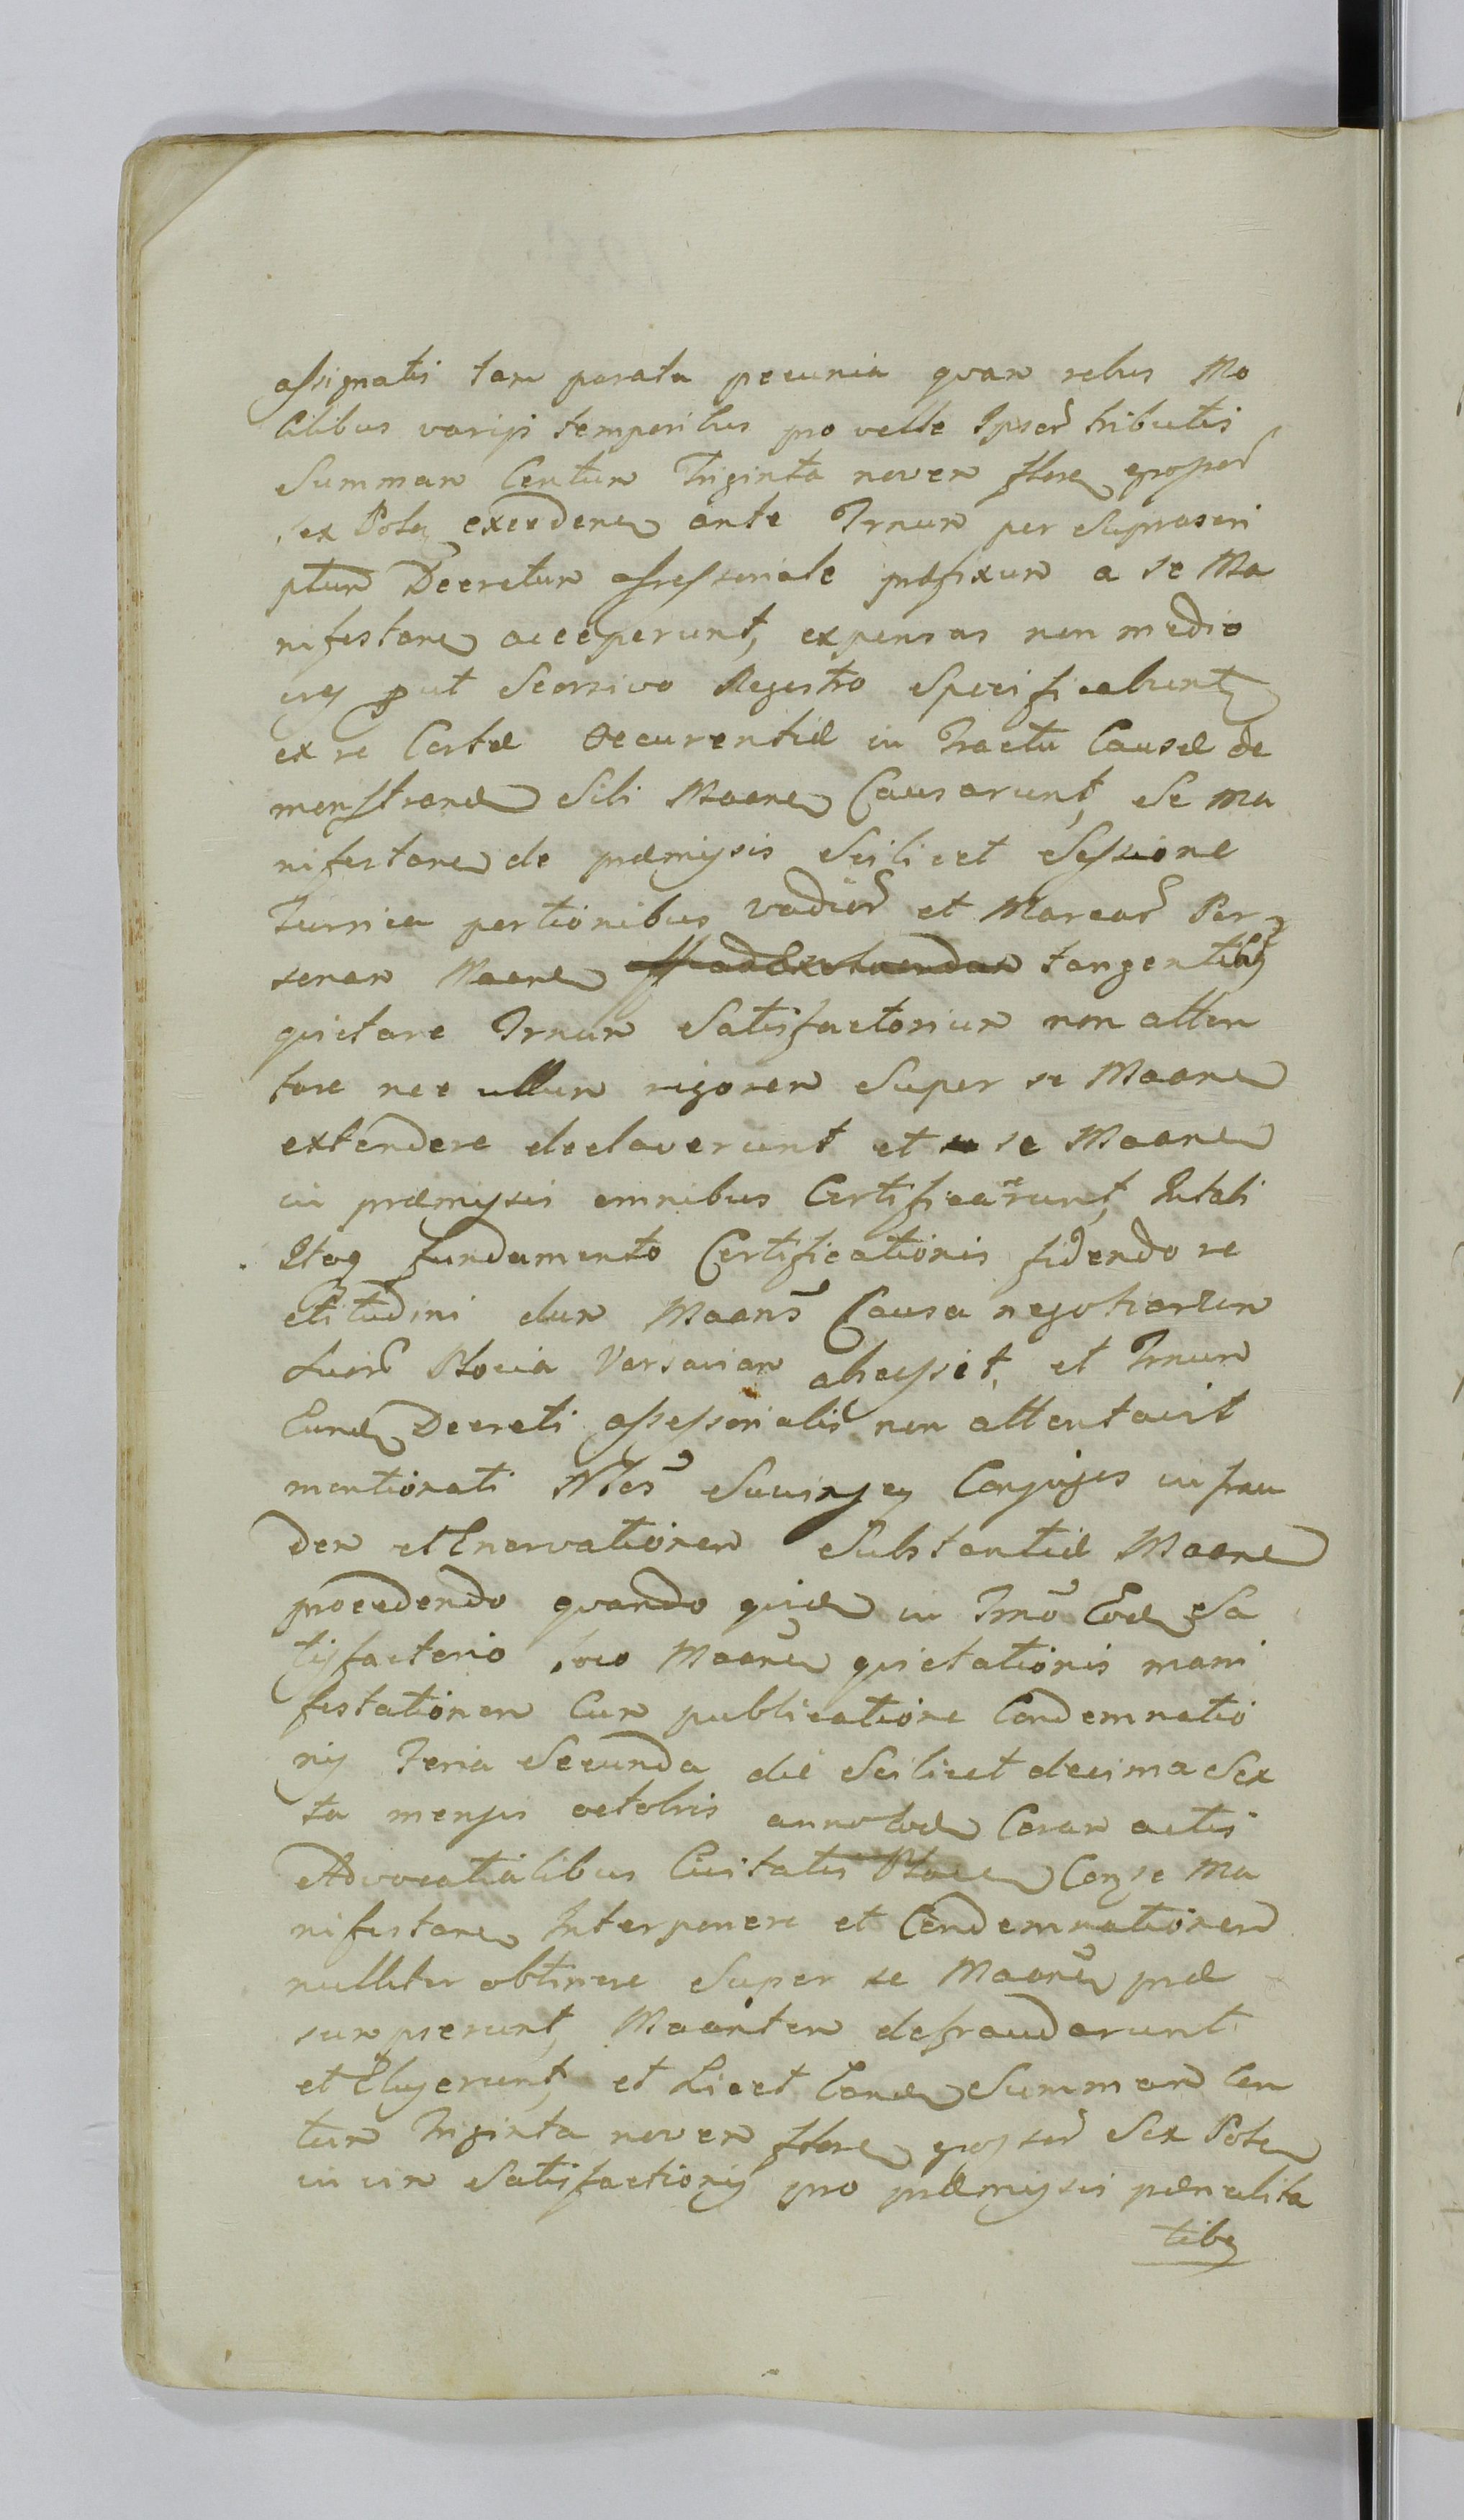 assignatis tam parata pecunia quam rebus Mo
bilibus varijs temporibus pro velle Ipsor̃ tributis
Summam Centum Triginta novem flore grosser̃
sex Pola excedene ante Trnum per Suprascri
ptum Decretum assessoriale præfixum a se Ma
nifestane acceperunt, expensas non medio
crey put Seorsivo Regestro Specificabunt
ex re Cartæ Occurentiæ in Tractu Causæ de
monstrand Sibi Maane Causarunt, Se ma
nifestane de præmissis Scilicet Sessione
Jurrica portionibus vadior̃ et Marcar̃ Per
sonam Maane tangentibus
quietare Trnum Satisfactorium non atten
tare nec ullum rigorem Super se Maane
extendere declaverunt et se Maane
in præmyssis omnibus Certificarunt, Intali
Itaq fundamento Certificationis fidendo re
ctitudini dum Maans Causa negotiorum
Suor̃ Plocia Varsaviam abcessit, et Trnum
Eund Decreti assessorialis non attentavit
mentionati Conjuges in frau
dem et Enervationem Substantiæ Maane
procedendo quando quid in Trno Eod Sa
tisfactorio loco Maane quietationis mani
festationem Cum publicatione Condemnatio
nis Feria Secunda die Scilicet decima Sex
ta mensis octobris anno eod Coram actis
Advocatialibus Civitatis Ploce Conse Ma
nifestane Interponere et Condemnationem
nulliter obtinere Super se Maane præ
sumpserunt, Maantem defraudarunt
et Eluserunt, et Licet Eand Summam Cen
tum Triginta novem flore grosser̃ Sex Pola
in vim Satisfactionis pro præmyssis pænalita
tibq